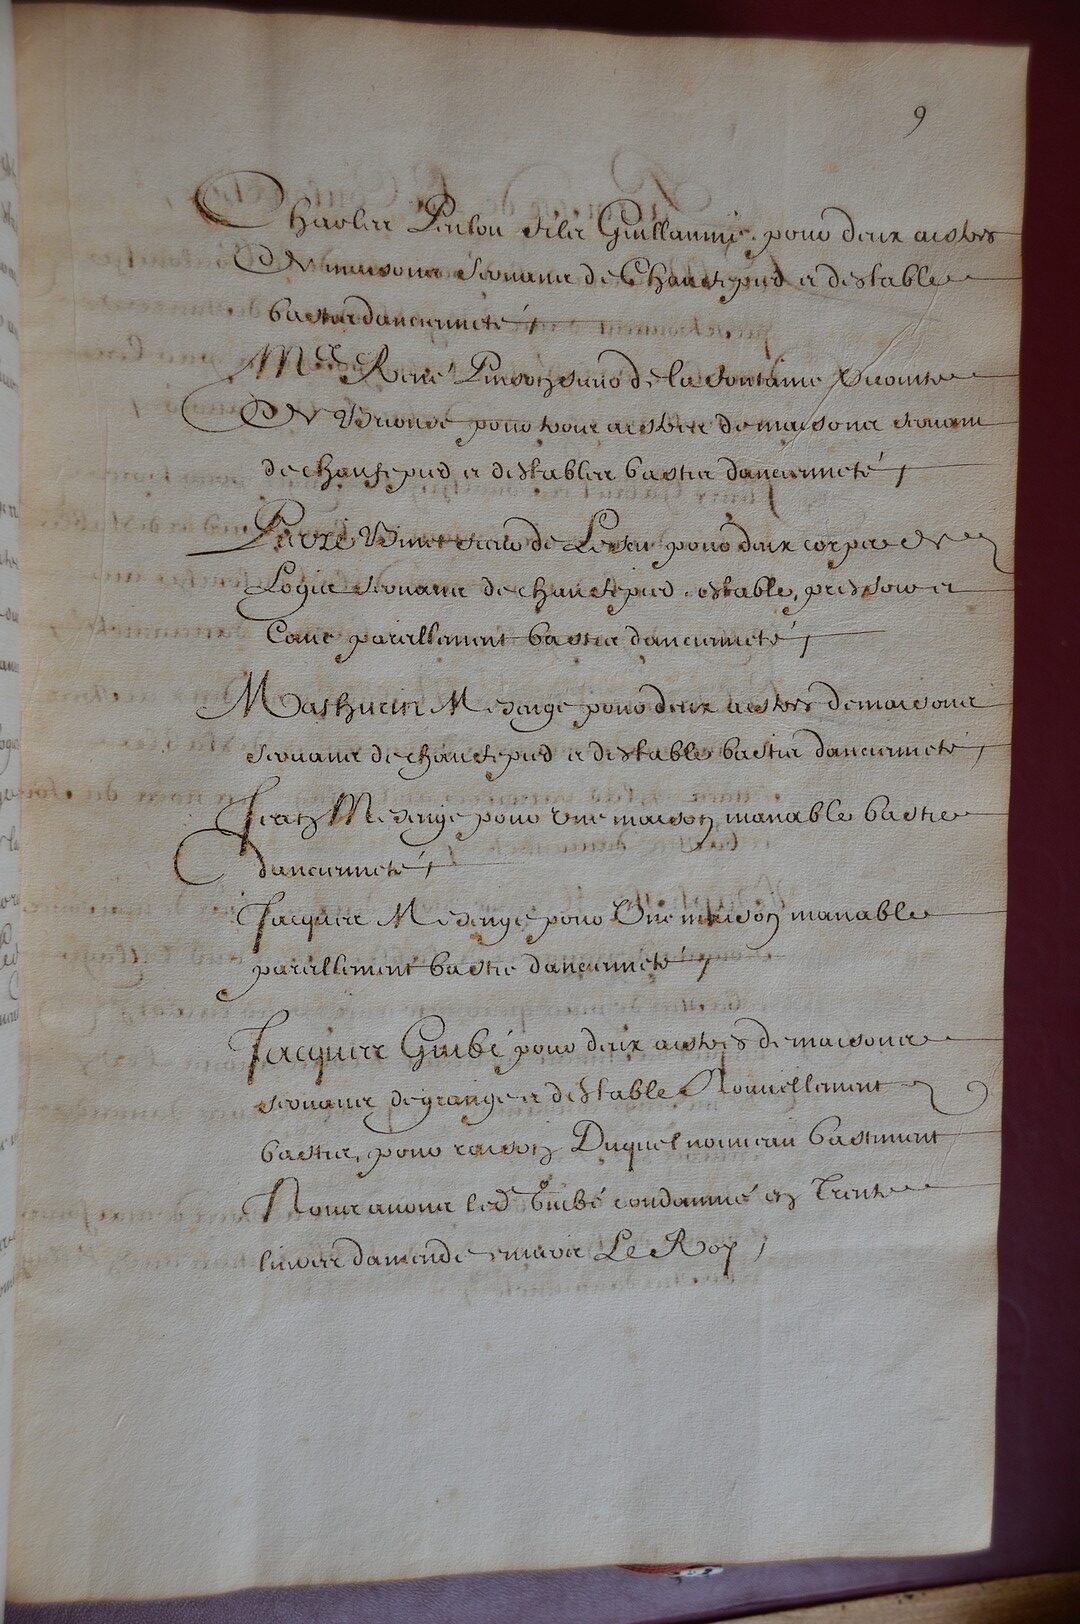 9
Charles Penlou filz Guillaume, pour deux aistres
De maisons servans de Chaufepied et destable
bastis danciennete /
Me René Pinson sieur de la fontaine Vicomte
De Brionde pour trois aistres de maisons servans
de chaufepied et destables bastis danciennete /
Pierre Binet sieur de pour deux corps de
Logis servans de chaufepied estable, pressoir et
Cave pareillement bastis danciennete /
Mathurin Mezenge pour deux aistres de maisons
servans de chaufepied et destable bastis danciennete /
Jean Mezenge pour Une maison manable bastie
danciennete /
Jacques Mezenge pour Une maison manable
pareillement bastie danciennete /
Jacques Guibé pour deux aistres de maisons
servans de grange et destable Nouvellement
bastis, pour raison Duquel nouveau bastiment
Nous avons led Guibé condamné en Trente
livres damende envers Le Roy /